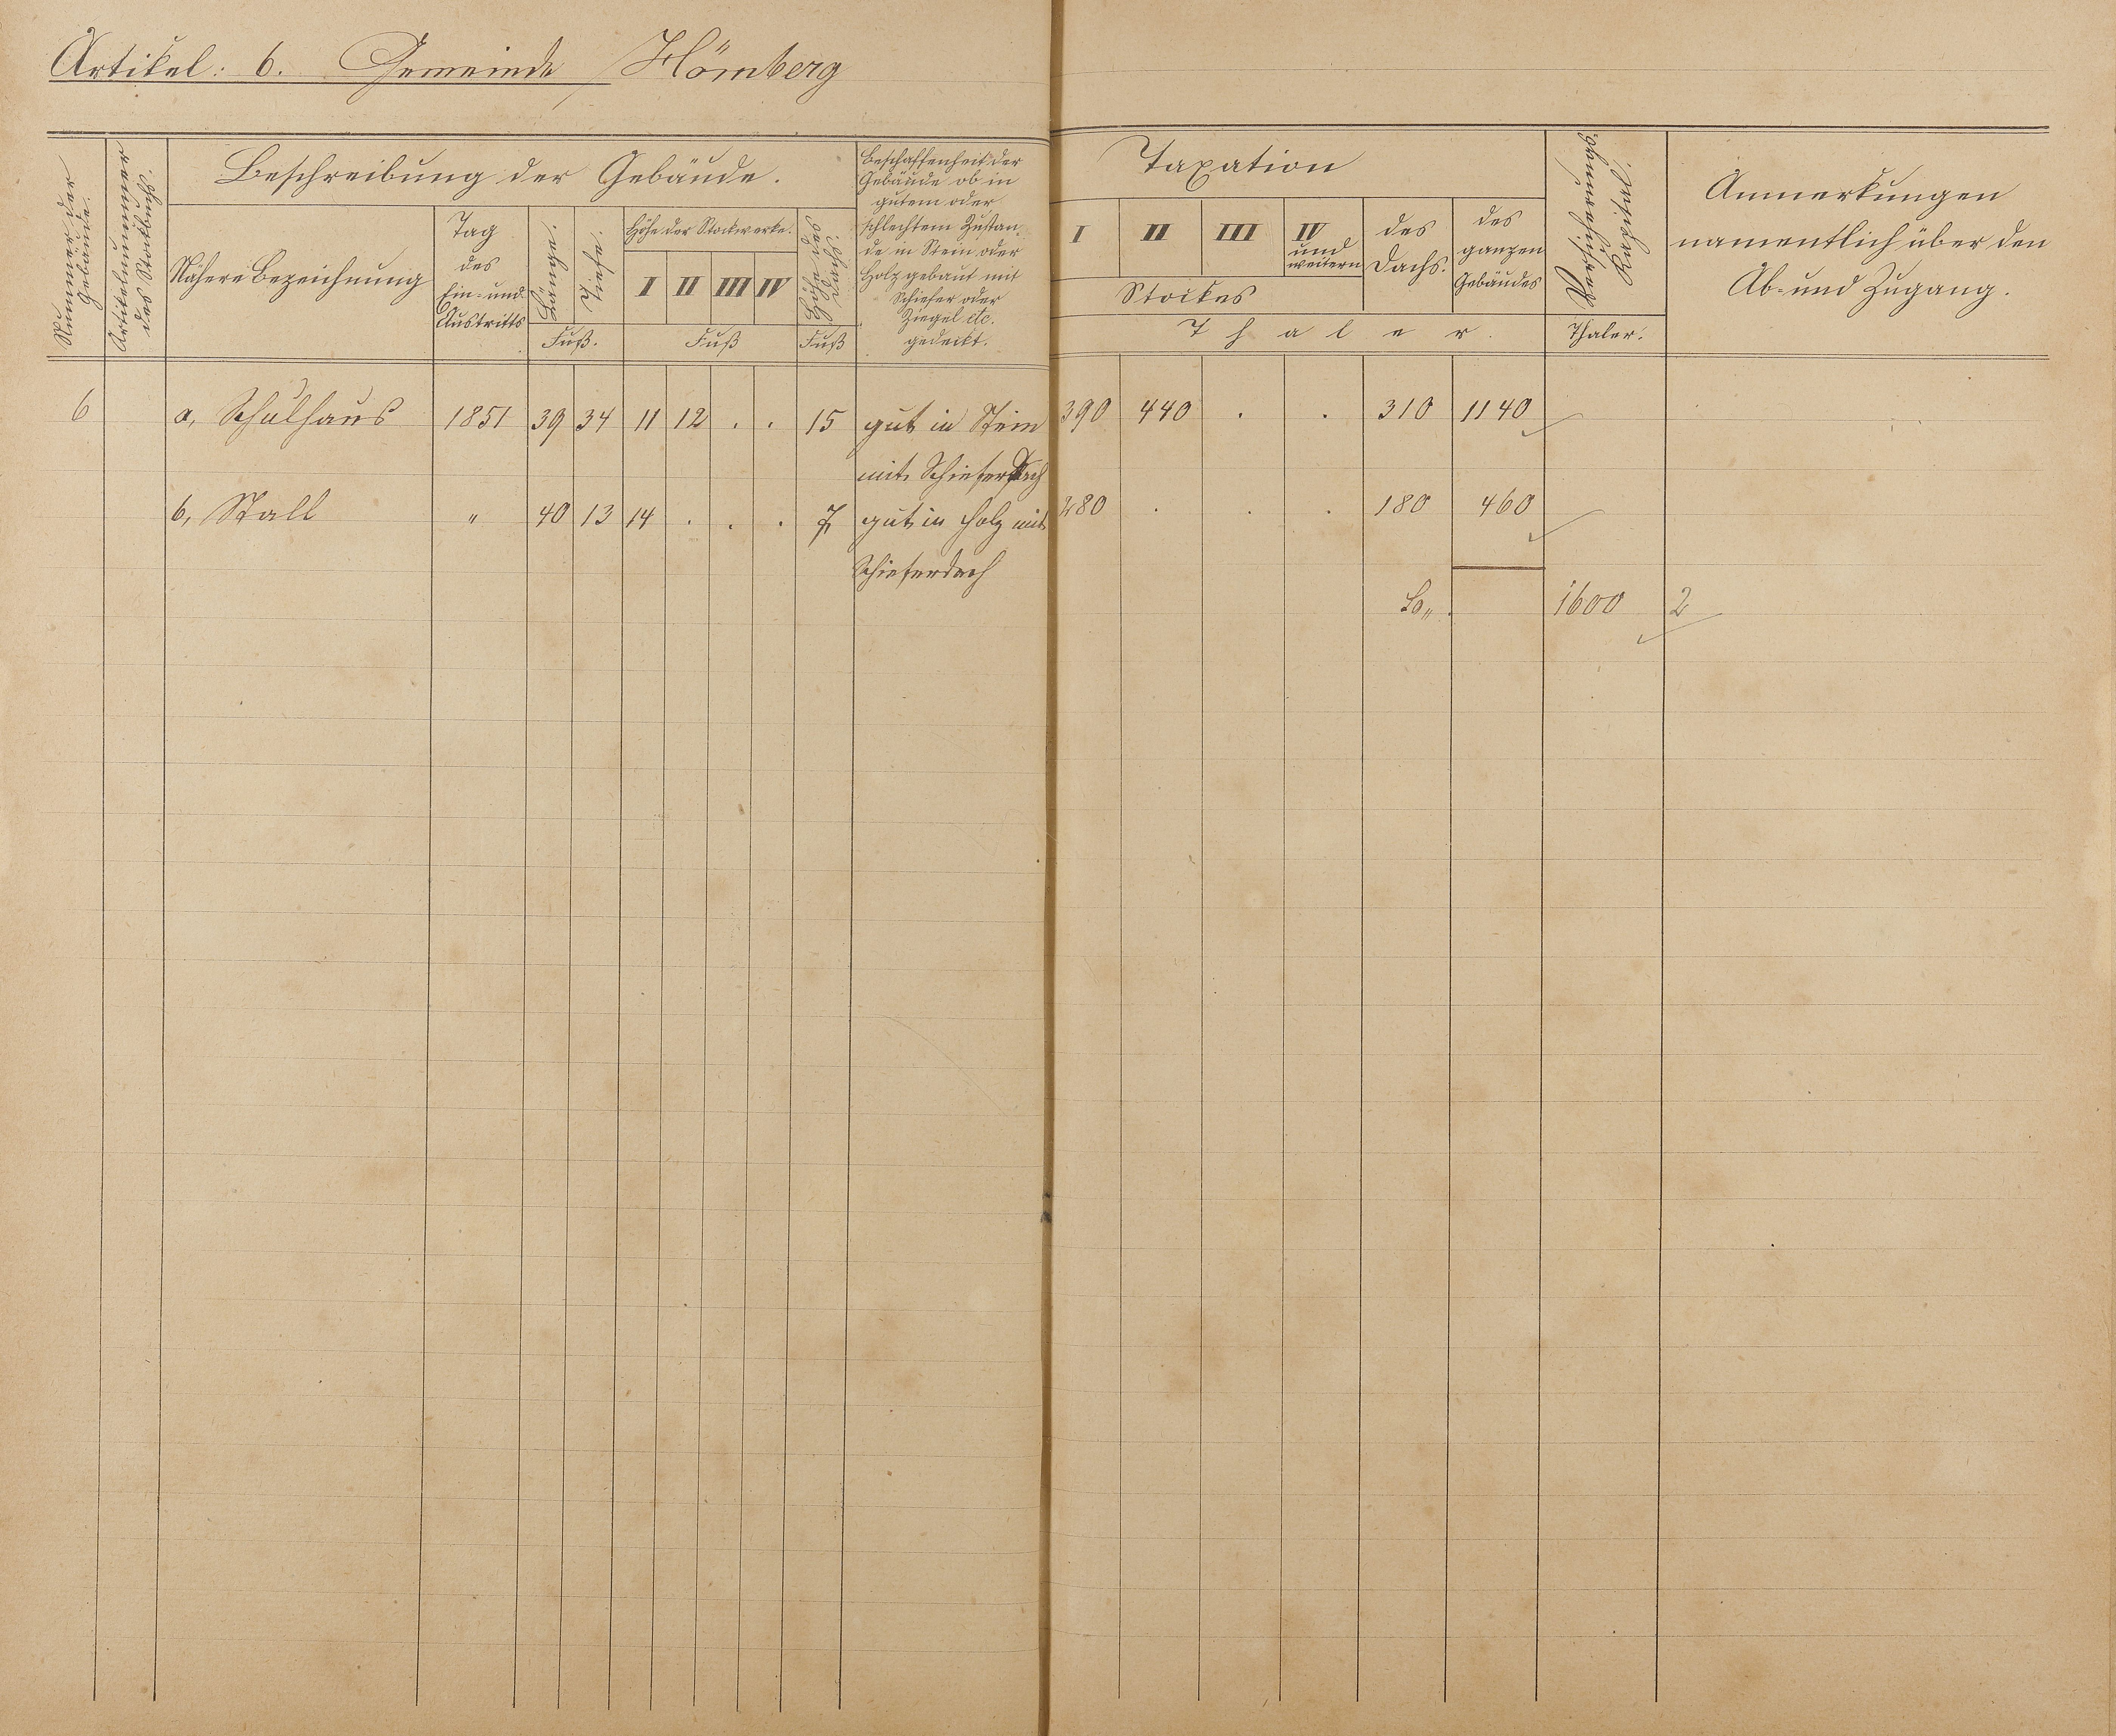 Artikel: 6. Gemeinde Hömberg
Nummer der Gebäude.
Artikelnummer des Stockbuchs.
Beschreibung der Gebäude.
Nähere Bezeichnung
Tag
des
Ein- und
Austritts
Länge.
Tiefe.
Fuß.
Höhe der Stockwerke.
I II III IV
Fuß
Höhe des Dachs.
Fuß
Beschaffenheit der
Gebäude ob in
gutem oder
schlechtem Zustan-
de in Stein oder
Holz gebaut mit
Schiefer oder
Ziegel etc.
gedeckt.
Taxation
I II III IV
und
weitern
Stockes
des
Dachs.
des
ganzen
Gebäudes
Thaler.
Thaler.
Anmerkungen
namentlich über den
Ab- und Zugang.
6 a, Schulhaus 1851 39 34 11 12 . . 15 gut in Stein 390 440 . . 310 1140
mit Schieferdach
b, Stall " 40 13 14 . . . 7 gut in Holz mit 280 . . . 180 460
Schieferdach
1600 2